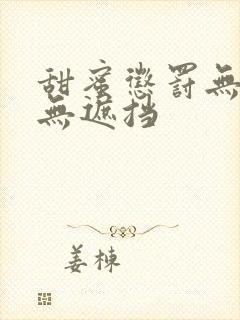 甜蜜懲罰無
無遮挡
姜栋